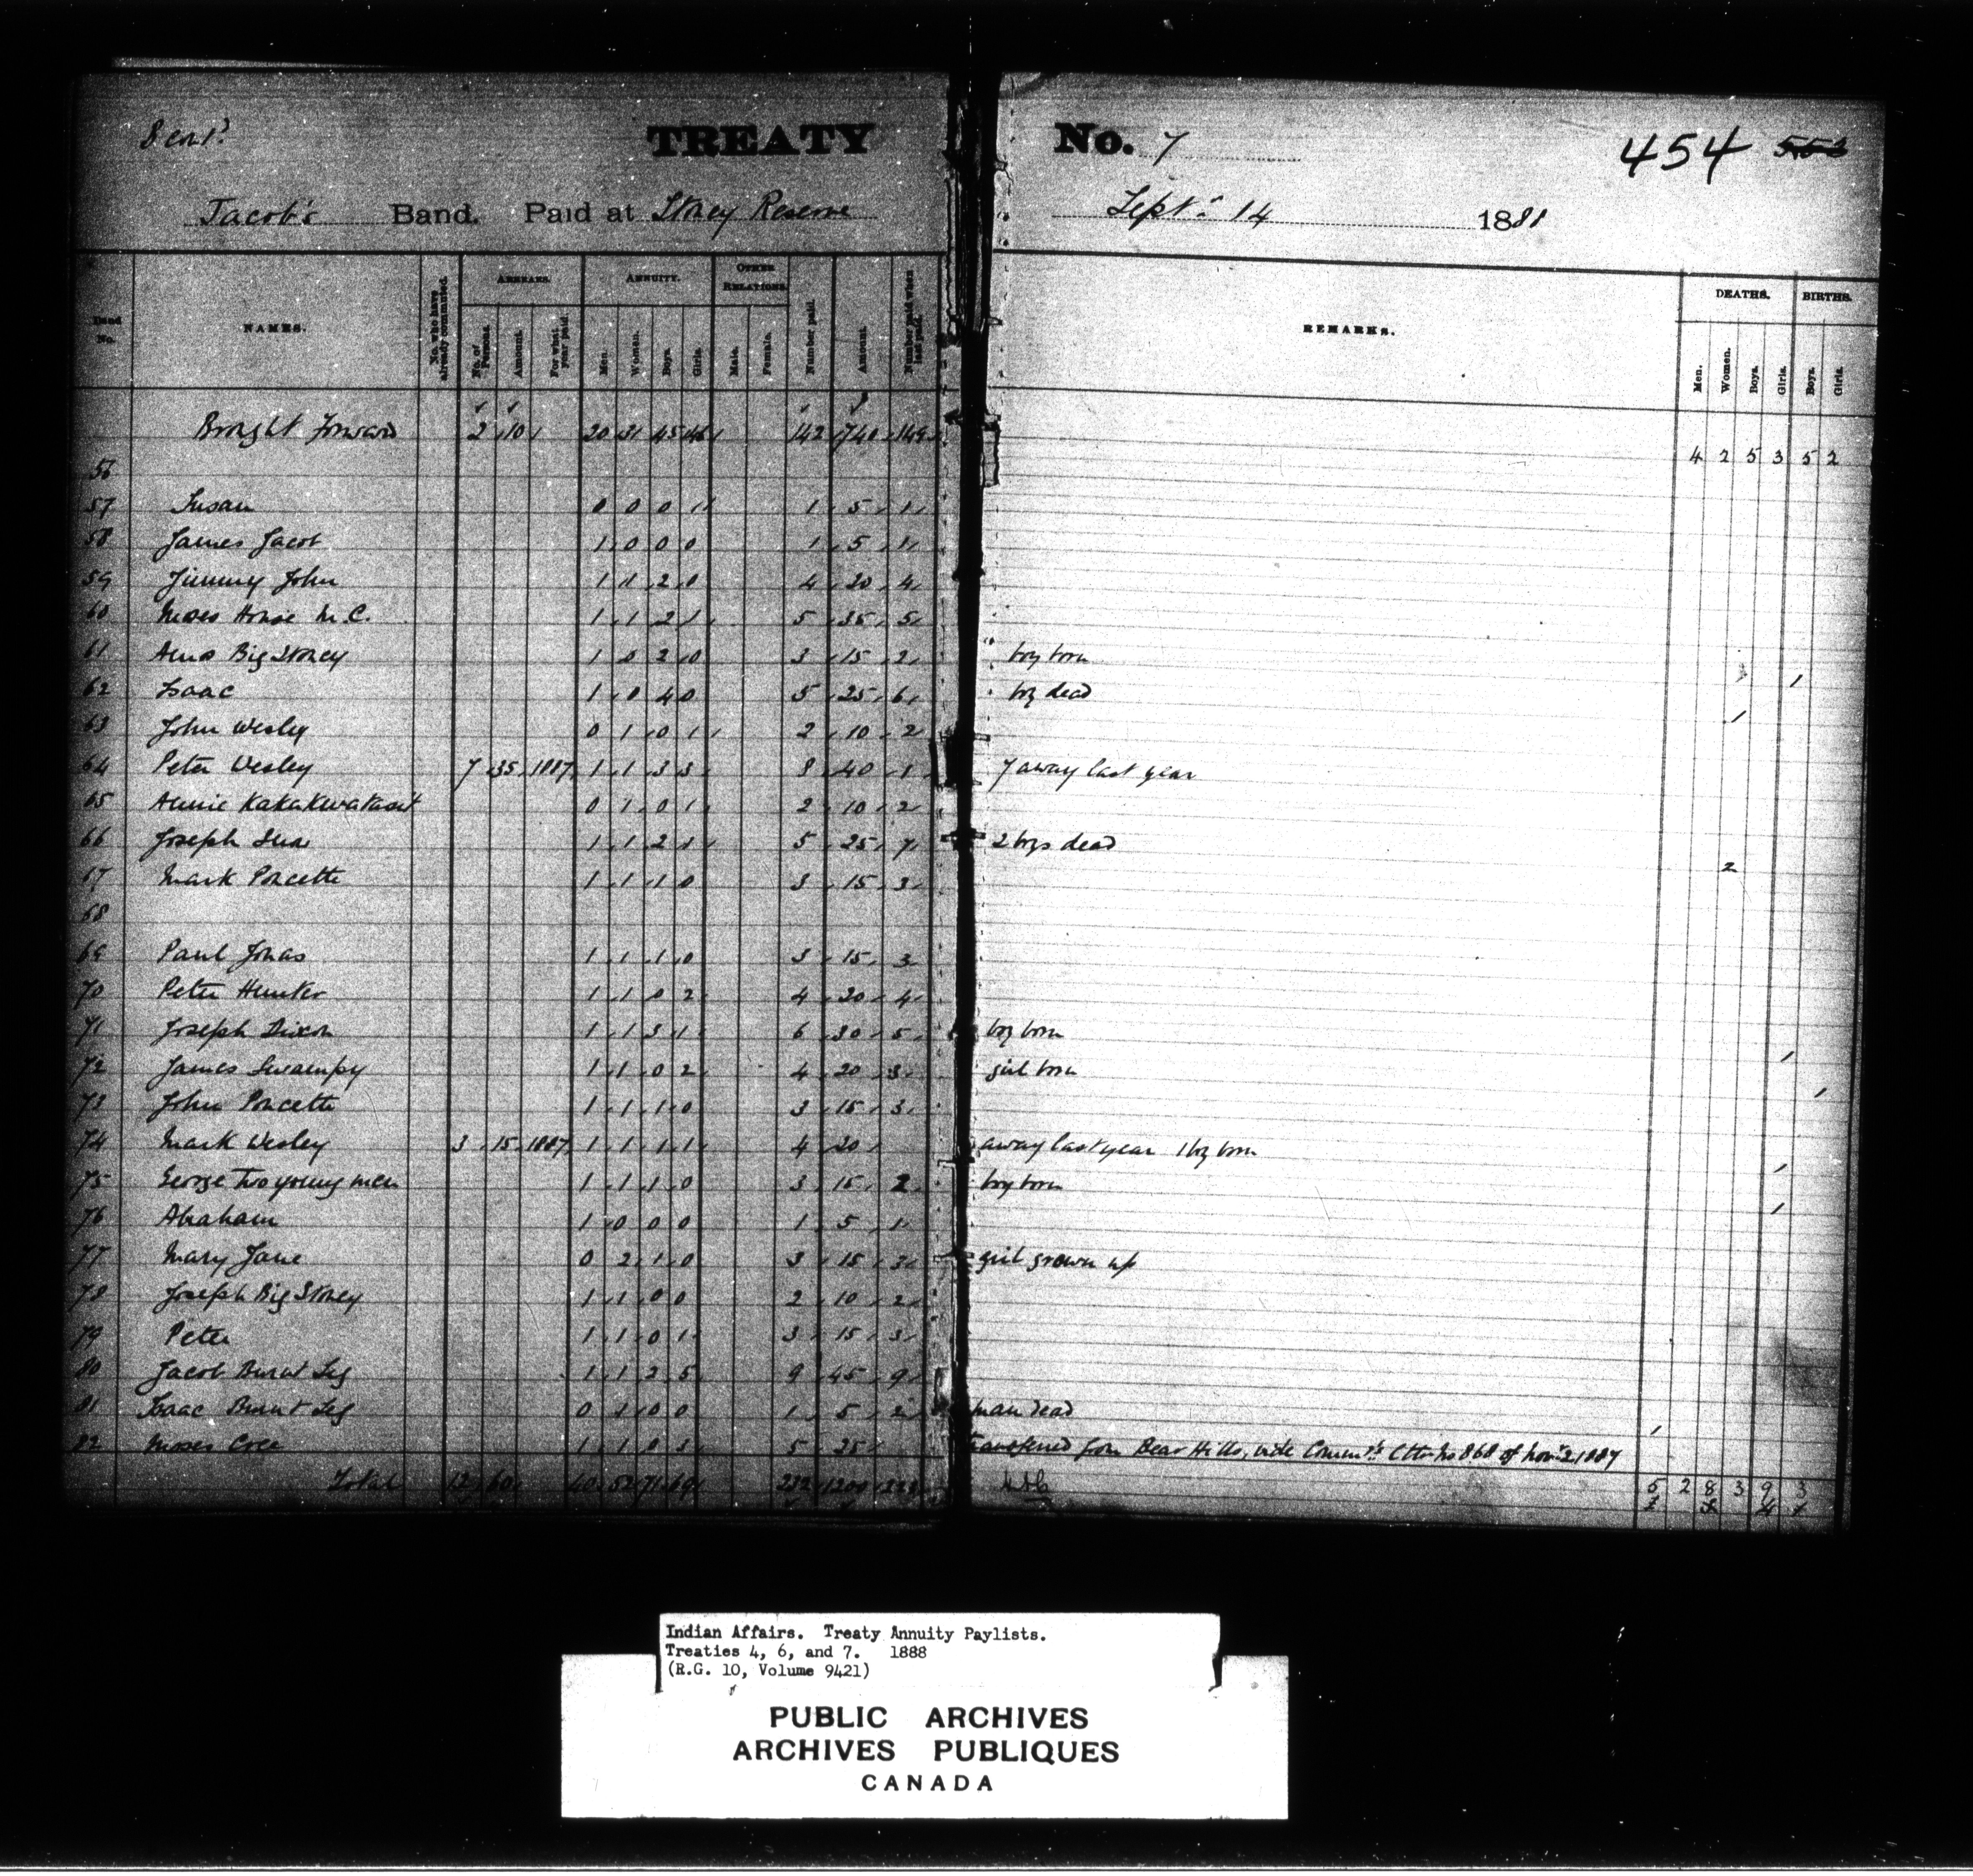 TREATY No. 7 454
Jacob's Band. Paid at Stoney Reserve Sept. 14 1888
Band No. NAMES. No. who have already commuted. ARREARS. No. of Persons. Amount. For what year paid. ANNUITY. Men. Women. Boys. Girls. OTHER RELATIONS. Male. Female. Number paid. Amount. Number paid when last paid. REMARKS. DEATHS. Men. Women. Boys. Girls. BIRTHS. Boys. Girls.
Brought Forward 2 10 20 31 45 46 142 740 149 4 2 5 3 5 2
56
57 Susan 0 0 0 1 1 5 1
58 James Jacob 1 0 0 0 1 5 1
59 Jimmy John 1 1 2 0 4 20 4
60 Moses House M.C. 1 1 2 1 5 35 5
61 Amos Big Stoney 1 0 2 0 3 15 2 boy born 1
62 Isaac 1 0 4 0 5 25 6 boy dead 1
63 John Wesley 0 1 0 1 2 10 2
64 Peter Wesley 7 35 1887 1 1 3 3 8 40 1 7 away last year
65 Annie Kakakwatasit 0 1 0 1 2 10 2
66 Joseph 1 1 2 1 5 25 7 2 boys dead 2
67 Mark Poucette 1 1 1 0 3 15 3
68
69 Paul Jonas 1 1 1 0 3 15 3
70 Peter Hunter 1 1 0 2 4 20 4
71 Joseph Dixon 1 1 3 1 6 30 5 boy born 1
72 James Swampy 1 1 0 2 4 20 3 girl born 1
73 John Poucette 1 1 1 0 3 15 3
74 Mark Wesley 3 15 1887 1 1 1 1 4 20 away last year 1 boy born 1
75 George Two young men 1 1 1 0 3 15 2 boy born 1
76 Abraham 1 0 0 0 1 5 1
77 Mary Jane 0 2 1 0 3 15 3 girl grown up
78 Joseph Big Stoney 1 1 0 0 2 10 2
79 Peter 1 1 0 1 3 15 3
80 Jacob Burnt Leg 1 1 2 5 9 45 9
81 Isaac Burnt Leg 0 1 0 0 1 5 2 man dead 1
82 Moses Cree 1 1 0 3 5 25 transferred from Bear Hills, vide Commr's Lttr No 868 of Nov. 2 1887
Total 12 60 40 52 71 69 232 1200 223 5 2 8 3 9 3
Indian Affairs. Treaty Annuity Paylists.
Treaties 4, 6, and 7. 1888
(R.G. 10, Volume 9421)
PUBLIC ARCHIVES
ARCHIVES PUBLIQUES
CANADA